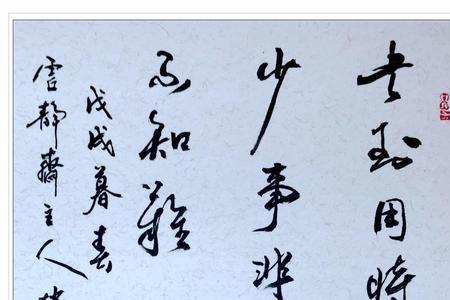 书到用時
少事非
不知難
戊戌暮春
雲静齋主人